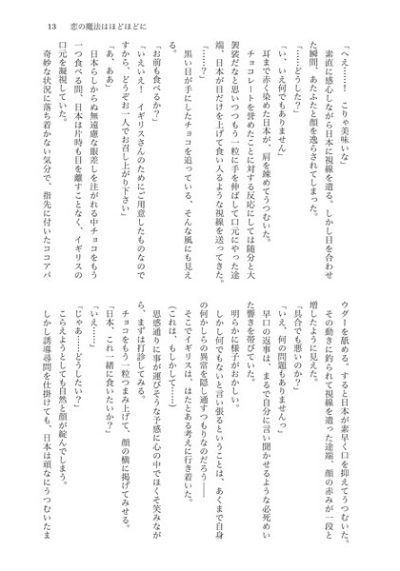 13　恋の魔法はほどほどに
「へえ……！　こりゃ美味いな」
素直に感心しながら日本に視線を遣る。しかし目を合わせ
た瞬間、あたふたと顔を逸らされてしまった。
「……どうした？」
「い、いえ何でもありません」
耳まで赤く染めた日本が、肩を竦めてうつむいた。
チョコレートを誉めたことに対する反応にしては随分と大
袈裟だなと思いつつもう一粒に手を伸ばして口元にやった途
端、日本が目だけを上げて食い入るような視線を送ってきた。
「……？」
黒い目が手にしたチョコを追っている、そんな風にも見え
る。
「お前も食べるか？」
「いえいえ！　イギリスさんのためにご用意したものなので
すから、どうぞお一人でお召し上がり下さい」
「あ、ああ」
日本らしからぬ無遠慮な眼差しを注がれる中チョコをもう
一つ食べる間、日本は片時も目を離すことなく、イギリスの
口元を凝視していた。
奇妙な状況に落ち着かない気分で、指先に付いたココアパ
ウダーを舐める。すると日本が素早く口を抑えてうつむいた。
その動きに釣られて視線を遣った途端、顔の赤みが一段と
増したように見えた。
「具合でも悪いのか？」
「いえ、何の問題もありませんっ」
早口の返事は、まるで自分に言い聞かせるような必死めい
た響きを帯びていた。
明らかに様子がおかしい。
しかし何でもないと言い張るということは、あくまで自身
の何かしらの異常を隠し通すつもりなのだろう――
そこでイギリスは、はたとある考えに行き着いた。
（これは、もしかして……）
思惑通りに事が運びそうな予感に心の中でほくそ笑みなが
ら、まずは打診してみる。
チョコをもう一粒つまみ上げて、顔の横に掲げてみせる。
「日本、これ一緒に食いたいか？」
「いえ……」
「じゃあ……どうしたい？」
こらえようとしても自然と顔が綻んでしまう。
しかし誘導尋問を仕掛けても、日本は頑なにうつむいたま